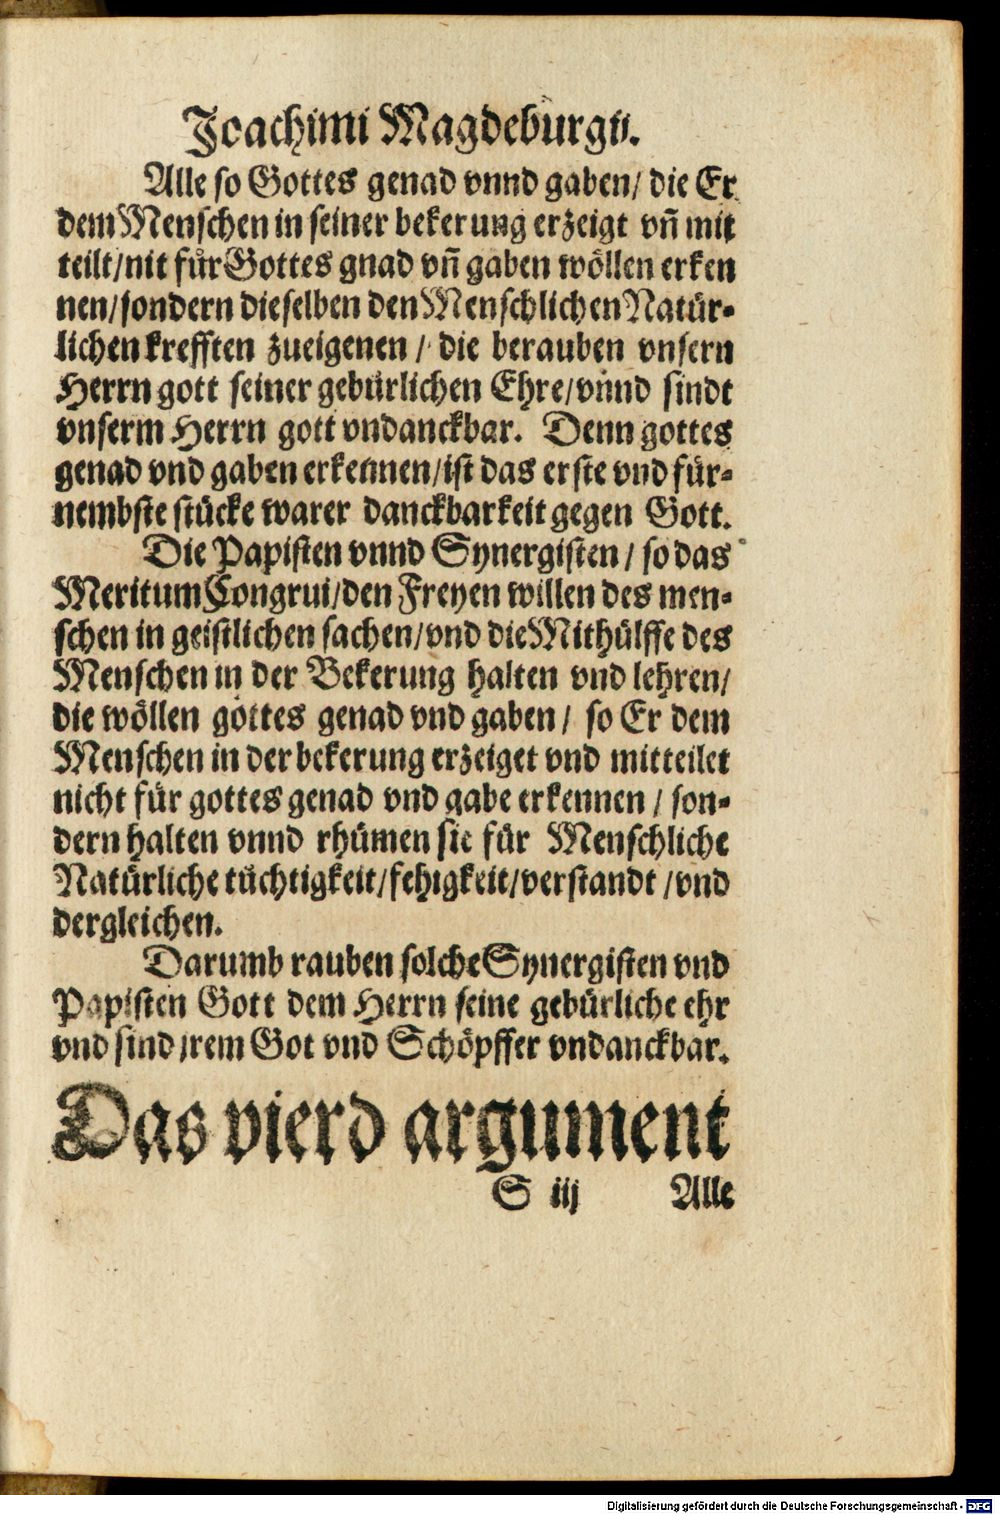 Joachimi Magdeburgii.
Alle so Gottes genad vnnd gaben/ die Er
dem Menschen in seiner bekerung erzeigt vñ mit
teilt/nit für Gottes gnad vñ gaben wöllen erken
nen/sondern dieselben den Menschlichen Natür-
lichen krefften zueigenen / die berauben vnsern
Herrn gott seiner gebürlichen Ehre/vnnd sindt
vnserm Herrn gott vndanckbar. Denn gottes
genad vnd gaben erkennen/ist das erste vnd für-
nembste stücke warer danckbarkeit gegen Gott.
Die Papisten vnnd Synergisten / so das
Meritum Congrui/den Freyen willen des men-
schen in geistlichen sachen/vnd die Mithülffe des
Menschen in der Bekerung halten vnd lehren/
die wöllen gottes genad vnd gaben / so Er dem
Menschen in der bekerung erzeiget vnd mitteilet
nicht für gottes genad vnd gabe erkennen / son-
dern halten vnnd rhümen sie für Menschliche
Natürliche tüchtigkeit/fehigkeit/verstandt /vnd
dergleichen.
Darumb rauben solche Synergisten vnd
Papisten Gott dem Herrn seine gebürliche ehr
vnd sind jrem Got vnd Schöpffer vndanckbar.
Das vierd argument
S iij Alle
Digitalisierung gefördert durch die Deutsche Forschungsgemeinschaft - DFG